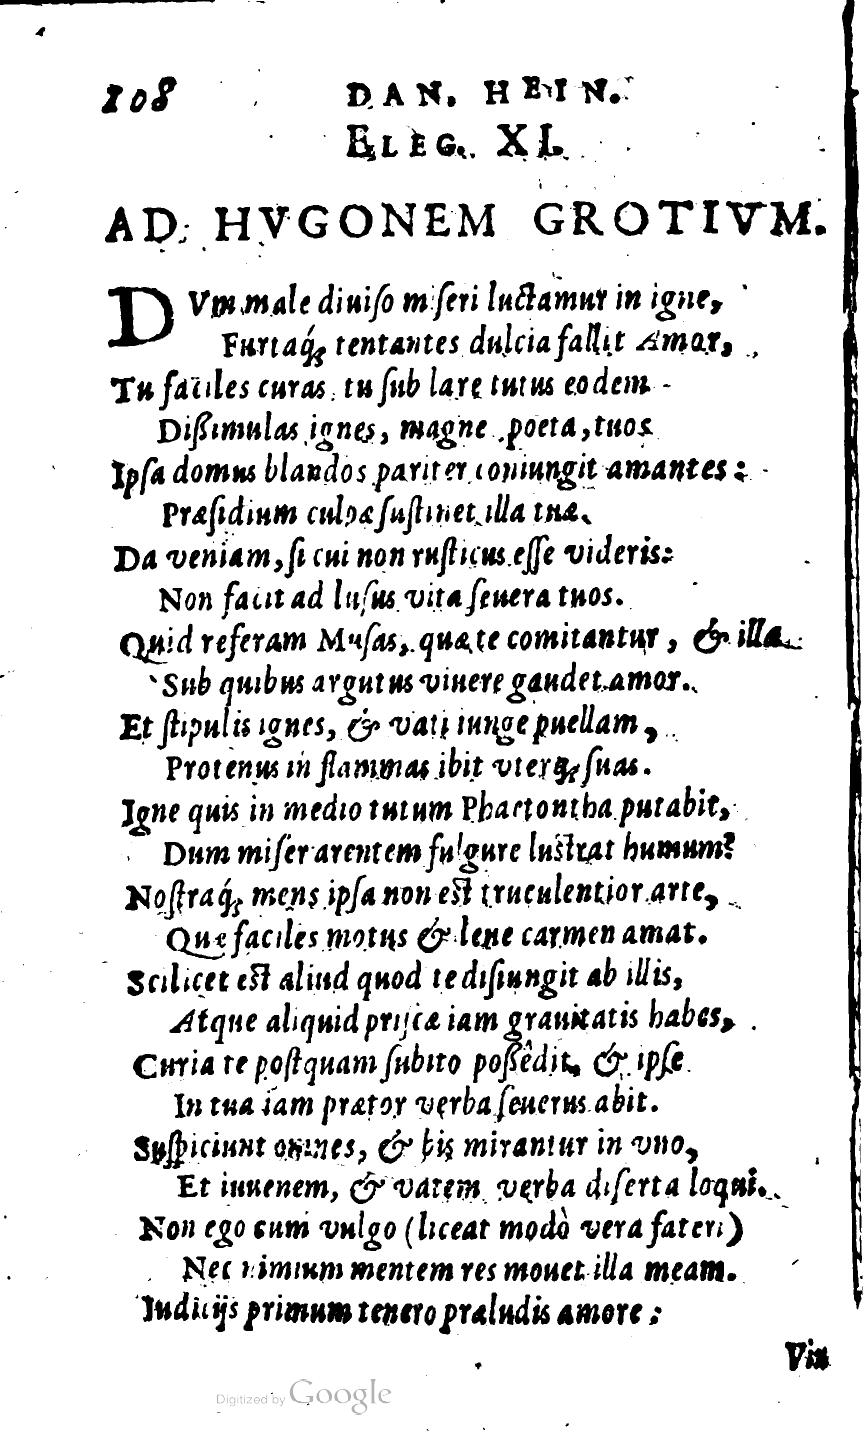 108 DAN. HEIN.
ELEG. XI.
AD HVGONEM GROTIVM.
DVm male diuiso miseri luctamur in igne,
Furtaq́; tentantes dulcia fallit Amor,
Tu faciles curas tu sub lare tutus eodem
Dißimulas ignes, magne poeta, tuos
Ipsa domus blandos pariter coniungit amantes:
Præsidium culpæ sustinet illa tuæ.
Da veniam, si cui non rusticus esse videris:
Non facit ad lusus vita seuera tuos.
Quid referam Musas, quæ te comitantur, & illa
Sub quibus argutus viuere gaudet amor.
Et stipulis ignes, & vati iunge puellam,
Protenus in flammas ibit vterq; suas.
Igne quis in medio tutum Phaetontha putabit,
Dum miser arentem fulgure lustrat humum?
Nostraq́; mens ipsa non est truculentior arte,
Quæ faciles motus & lene carmen amat.
Scilicet est aliud quod te disiungit ab illis,
Atque aliquid priscæ iam grauitatis habes,
Curia te postquam subito possêdit, & ipse
In tua iam prætor verba seuerus abit.
Suspiciunt omnes, & bis mirantur in vno,
Et iuuenem, & vatem verba diserta loqui.
Non ego cum vulgo (liceat modò vera fateri)
Nec nimium mentem res mouet illa meam.
Iudicijs primum tenero præludis amore:
Vix
Digitized by Google